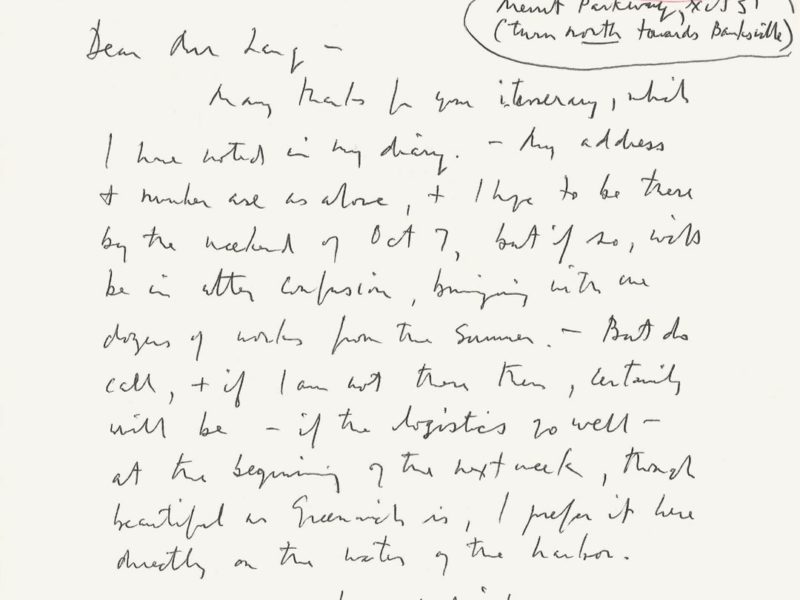 Merritt Parkway, x US 31
(turn north towards Banksville)
Dear Mr Lang –
Many thanks for your itinerary, which
I have noted in my diary. – My address
+ number are as above, + I hope to be there
by the weekend of Oct 7, but if so, will
be in utter confusion, bringing with me
dozens of works from the summer. – But do
call, + if I am not there then, certainly
will be – if the logistics go well –
at the beginning of the next week, though
beautiful as Greenwich is, I prefer it here
directly on the water of the harbor.